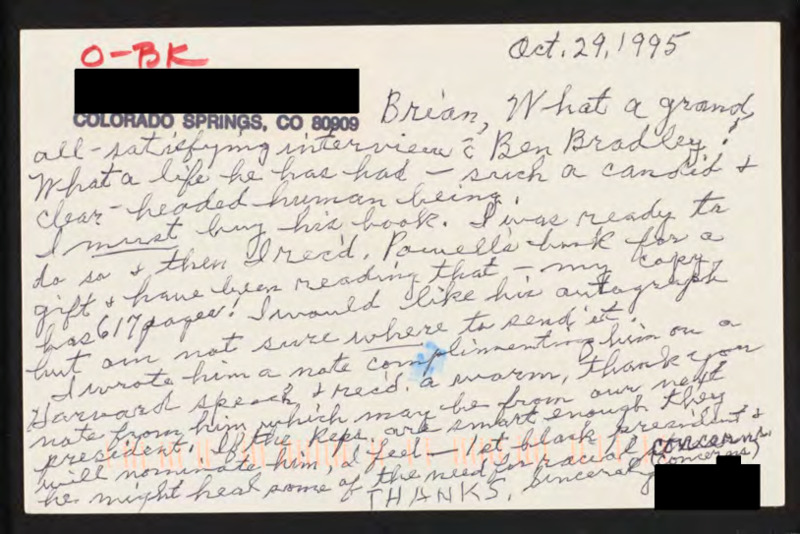 O-BK
Oct. 29, 1995
COLORADO SPRINGS, CO 80909
Brian, What a grand,
all-satisfying interview c̄ Ben Bradley!
What a life he has had – such a candid &
clear-headed human being.
I must buy his book. I was ready to
do so & then I rec'd. Powell's book for a
gift & have been reading that – my copy
has 617 pages! I would like his autograph
but am not sure where to send it!
I wrote him a note complimenting him on a
Harvard speech & rec'd. a warm, thank you
note from him which may be from our next
president. If the Reps. are smart enough they
will nominate him, I feel – 1st black president &
he might heal some of the need for racial concerns.
(concerns)
THANKS, Sincerely